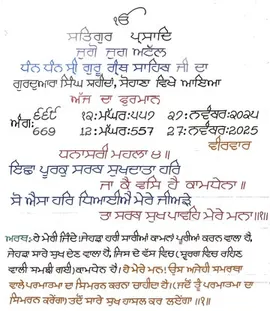 ੴ
ਸਤਿਗੁਰ ਪ੍ਰਸਾਦਿ
ਜੁਗੋ ਜੁਗ ਅਟੱਲ
ਧੰਨ ਧੰਨ ਸ੍ਰੀ ਗੁਰੂ ਗ੍ਰੰਥ ਸਾਹਿਬ ਜੀ ਦਾ
ਗੁਰਦੁਆਰਾ ਸਿੰਘ ਸ਼ਹੀਦਾਂ, ਸੋਹਾਣਾ ਵਿਖੇ ਆਇਆ
ਅੱਜ ਦਾ ਫੁਰਮਾਨ
ਅੰਗ: ੬੬੯ ੧੨:ਮੱਘਰ:੫੫੭ ੨੭:ਨਵੰਬਰ:੨੦੨੫
669 12:ਮੱਘਰ:557 27:ਨਵੰਬਰ:2025
ਵੀਰਵਾਰ
ਧਨਾਸਰੀ ਮਹਲਾ ੪॥
ਇਛਾ ਪੂਰਕੁ ਸਰਬ ਸੁਖਦਾਤਾ ਹਰਿ
ਜਾ ਕੈ ਵਸਿ ਹੈ ਕਾਮਧੇਨਾ॥
ਸੋ ਐਸਾ ਹਰਿ ਧਿਆਈਐ ਮੇਰੇ ਜੀਅੜੇ
ਤਾ ਸਰਬ ਸੁਖ ਪਾਵਹਿ ਮੇਰੇ ਮਨਾ॥੧॥
ਅਰਥ: ਹੇ ਮੇਰੀ ਜਿੰਦੇ! ਜੇਹੜਾ ਹਰੀ ਸਾਰੀਆਂ ਕਾਮਨਾਂ ਪੂਰੀਆਂ ਕਰਨ ਵਾਲਾ ਹੈ,
ਜੇਹੜਾ ਸਾਰੇ ਸੁਖ ਦੇਣ ਵਾਲਾ ਹੈ, ਜਿਸ ਦੇ ਵੱਸ ਵਿਚ (ਸ੍ਵਰਗ ਵਿਚ ਰਹਿਣ
ਵਾਲੀ ਸਮਝੀ ਗਈ) ਕਾਮਧੇਨ ਹੈ। ਹੇ ਮੇਰੇ ਮਨ! ਉਸ ਅਜੇਹੀ ਸਮਰਥਾ
ਵਾਲੇ ਪਰਮਾਤਮਾ ਦਾ ਸਿਮਰਨ ਕਰਨਾ ਚਾਹੀਦਾ ਹੈ। (ਜਦੋਂ ਤੂੰ ਪਰਮਾਤਮਾ ਦਾ
ਸਿਮਰਨ ਕਰੇਂਗਾ) ਤਦੋਂ ਸਾਰੇ ਸੁਖ ਹਾਸਲ ਕਰ ਲਏਂਗਾ ॥੧॥